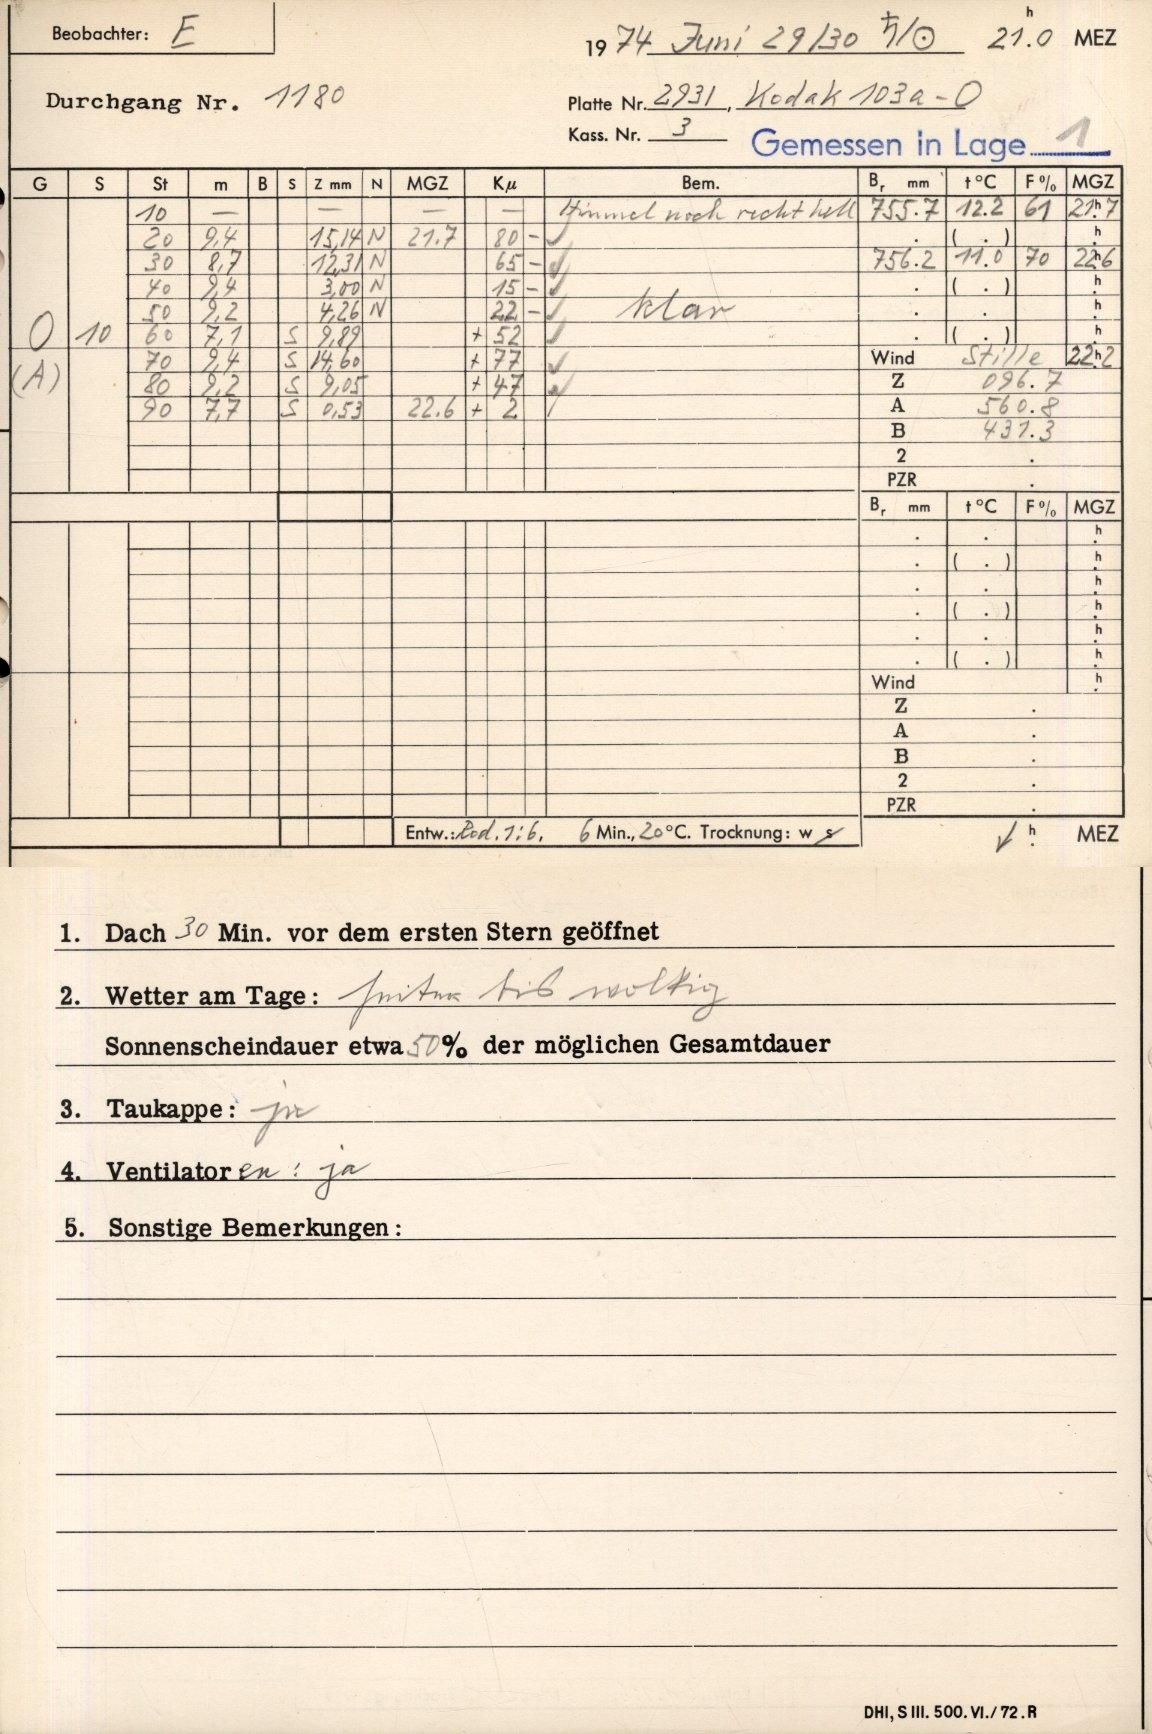 Beobachter: E
1974 Juni 29/30 ♄/☉ 21.0 h MEZ
Durchgang Nr. 1180
Platte Nr. 2931, Kodak 103a-O
Kass. Nr. 3
Gemessen in Lage 1
G S St m B S Z mm N MGZ Kμ Bem. Br mm t °C F % MGZ
10 — — — — Himmel noch recht hell 755.7 12.2 61 21h.7
20 9,4 15,14 N 21.7 80 - ✓ . ( . ) h
30 8,7 12,31 N 65 - ✓ 756.2 11.0 70 22h6
40 9,4 3,00 N 15 - ✓ . ( . ) h
50 9,2 4,26 N 22 - ✓ klar . . h
O 10 60 7,1 S 9,89 + 52 ✓ . ( . ) h
(A) 70 9,4 S 14,60 + 77 ✓ Wind Stille 22h2
80 9,2 S 9,05 + 47 ✓ Z 096.7
90 7,7 S 0,53 22.6 + 2 / A 560.8
B 431.3
2 .
PZR .
Br mm t °C F % MGZ
. . h
. ( . ) h
. . h
. ( . ) h
. . h
. ( . ) h
Wind h
Z .
A .
B .
2 .
PZR .
Entw.: Rod. 1:6. 6 Min., 20 °C. Trocknung: w s ✓ h MEZ
1. Dach 30 Min. vor dem ersten Stern geöffnet
2. Wetter am Tage: heiter bis wolkig
Sonnenscheindauer etwa 50% der möglichen Gesamtdauer
3. Taukappe: ja
4. Ventilatoren: ja
5. Sonstige Bemerkungen:
DHI, S III. 500. VI./72. R